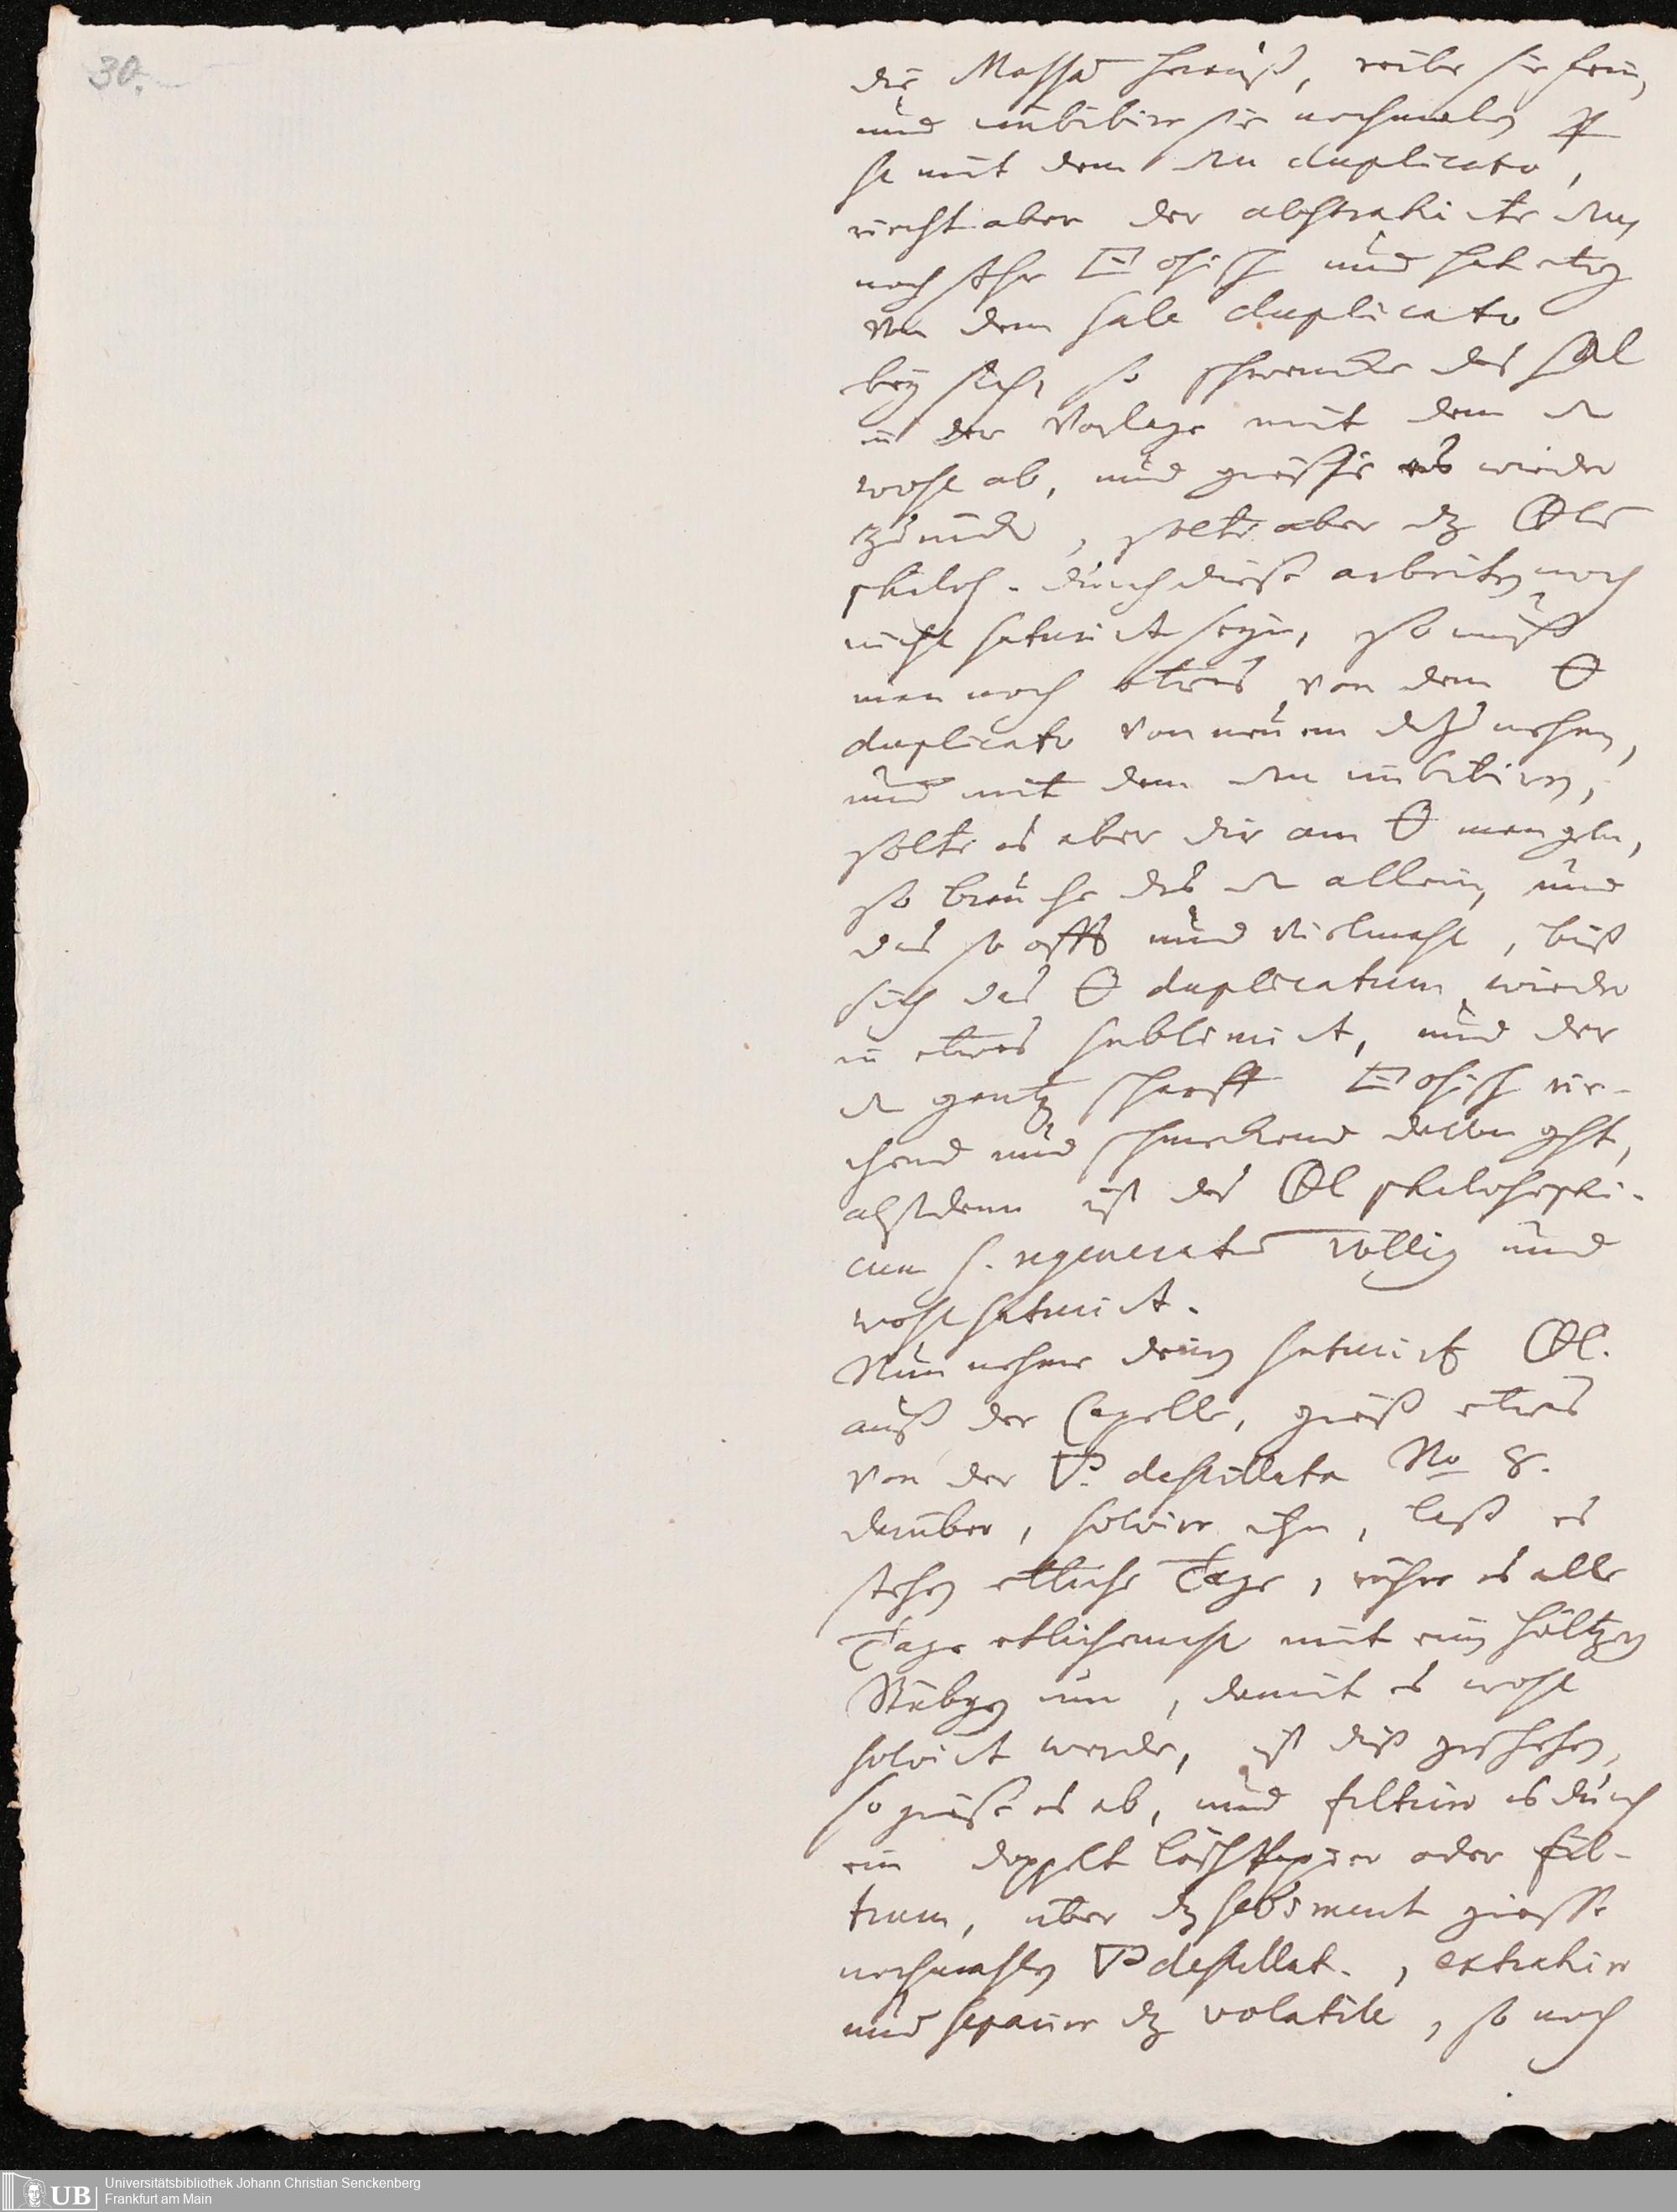 30.
die Massa herauß, reibe sie fein,
und imbibire sie nochmalen
mit dem duplicato,
riecht aber der abstrahirte
noch sehr und hat etwas
von dem sale duplicato
bey sich, so schwencke das sal
in der Vorlage mit dem
wohl ab, und giesse es wieder
zurück, solte aber dz
philos. durch diese arbeiten noch
nicht saturirt seyn, so muß
man noch etwas von dem
duplicato von neuem dazu nehmen,
und mit dem imbibiren,
solte es aber dir am mangeln,
so brauche das allein, und
das so offt und vielmahl, biß
sich das duplicatum wieder
in etwas sublimirt, und der
gantz scharff rie-
chend und schmeckend davon geht,
alßdenn ist das philosophi-
cum s. regeneratum völlig und
wohl saturirt.
Nun nehme deinen saturirten
auß der Capelle, gieß etwas
von der destillata No 8.
darüber, solvire ihn, laß es
stehen etliche Tage, rühre es alle
Tage etlichemahl mit ein höltzen
Stäbgen um, damit es wohl
solvirt werde, ist diß geschehen,
so giesse es ab, und filtrire es durch
ein doppelt löschpapier oder fil-
trum, über dz sediment giesse
nochmahlen destillat., extrahire
und separire dz volatile, so noch
Universitätsbibliothek Johann Christian Senckenberg
Frankfurt am Main
UB